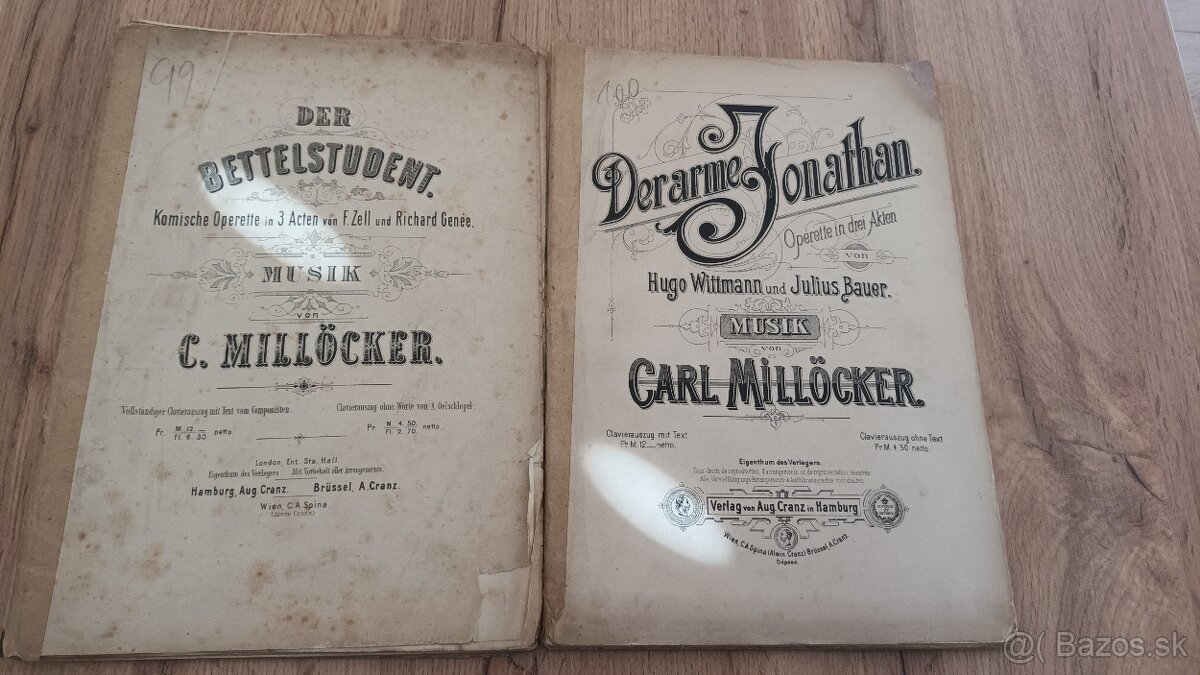 99
DER
BETTELSTUDENT.
Komische Operette in 3 Acten von F. Zell und Richard Genée.
MUSIK
von
C. MILLÖCKER.
Vollständiger Clavierauszug mit Text vom Componisten.
Pr. M. 12. — netto.
Fl. 6. 30.
Clavierauszug ohne Worte von A. Oelschlegel.
Pr. M. 4. 50. netto.
Fl. 2. 70.
London, Ent. Sta. Hall.
Eigenthum des Verlegers. Mit Vorbehalt aller Arrangements.
Hamburg, Aug. Cranz. Brüssel, A. Cranz.
Wien, C. A. Spina
(Alwin Cranz)
100
Der arme Jonathan.
Operette in drei Akten
von
Hugo Wittmann und Julius Bauer.
MUSIK
von
CARL MILLÖCKER.
Clavierauszug mit Text
Pr. M. 12.— netto.
Clavierauszug ohne Text
Pr. M. 4. 50 netto.
Eigenthum des Verlegers.
Tous droits de reproduction, d'arrangements et de représentation réservés.
Alle Vervielfältigungs- Arrangements- & Aufführungsrechte vorbehalten.
Verlag von Aug. Cranz in Hamburg
Wien, C.A. Spina (Alwin Cranz) Brüssel, A. Cranz.
Déposé
@( Bazos.sk